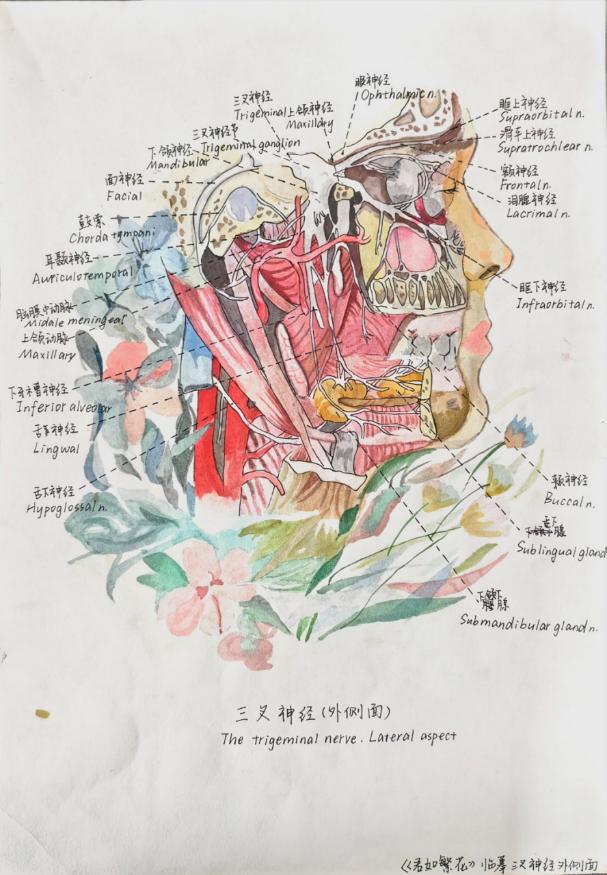 眼神经
Ophthalmic n.
三叉神经
Trigeminal
上颌神经
Maxillary
三叉神经节
Trigeminal ganglion
下颌神经
Mandibular
面神经
Facial
鼓索
Chorda tympani
耳颞神经
Auriculotemporal
脑膜中动脉
Midale meningeal
上颌动脉
Maxillary
下牙槽神经
Inferior alveolar
舌神经
Lingual
舌下神经
Hypoglossal n.
眶上神经
Supraorbital n.
滑车上神经
Supratrochlear n.
额神经
Frontal n.
泪腺神经
Lacrimal n.
眶下神经
Infraorbital n.
颊神经
Buccal n.
舌下
腺
Sublingual gland
下颌下
腺
Submandibular gland n.
三叉神经(外侧面)
The trigeminal nerve. Lateral aspect
《君如繁花》临摹 三叉神经外侧面